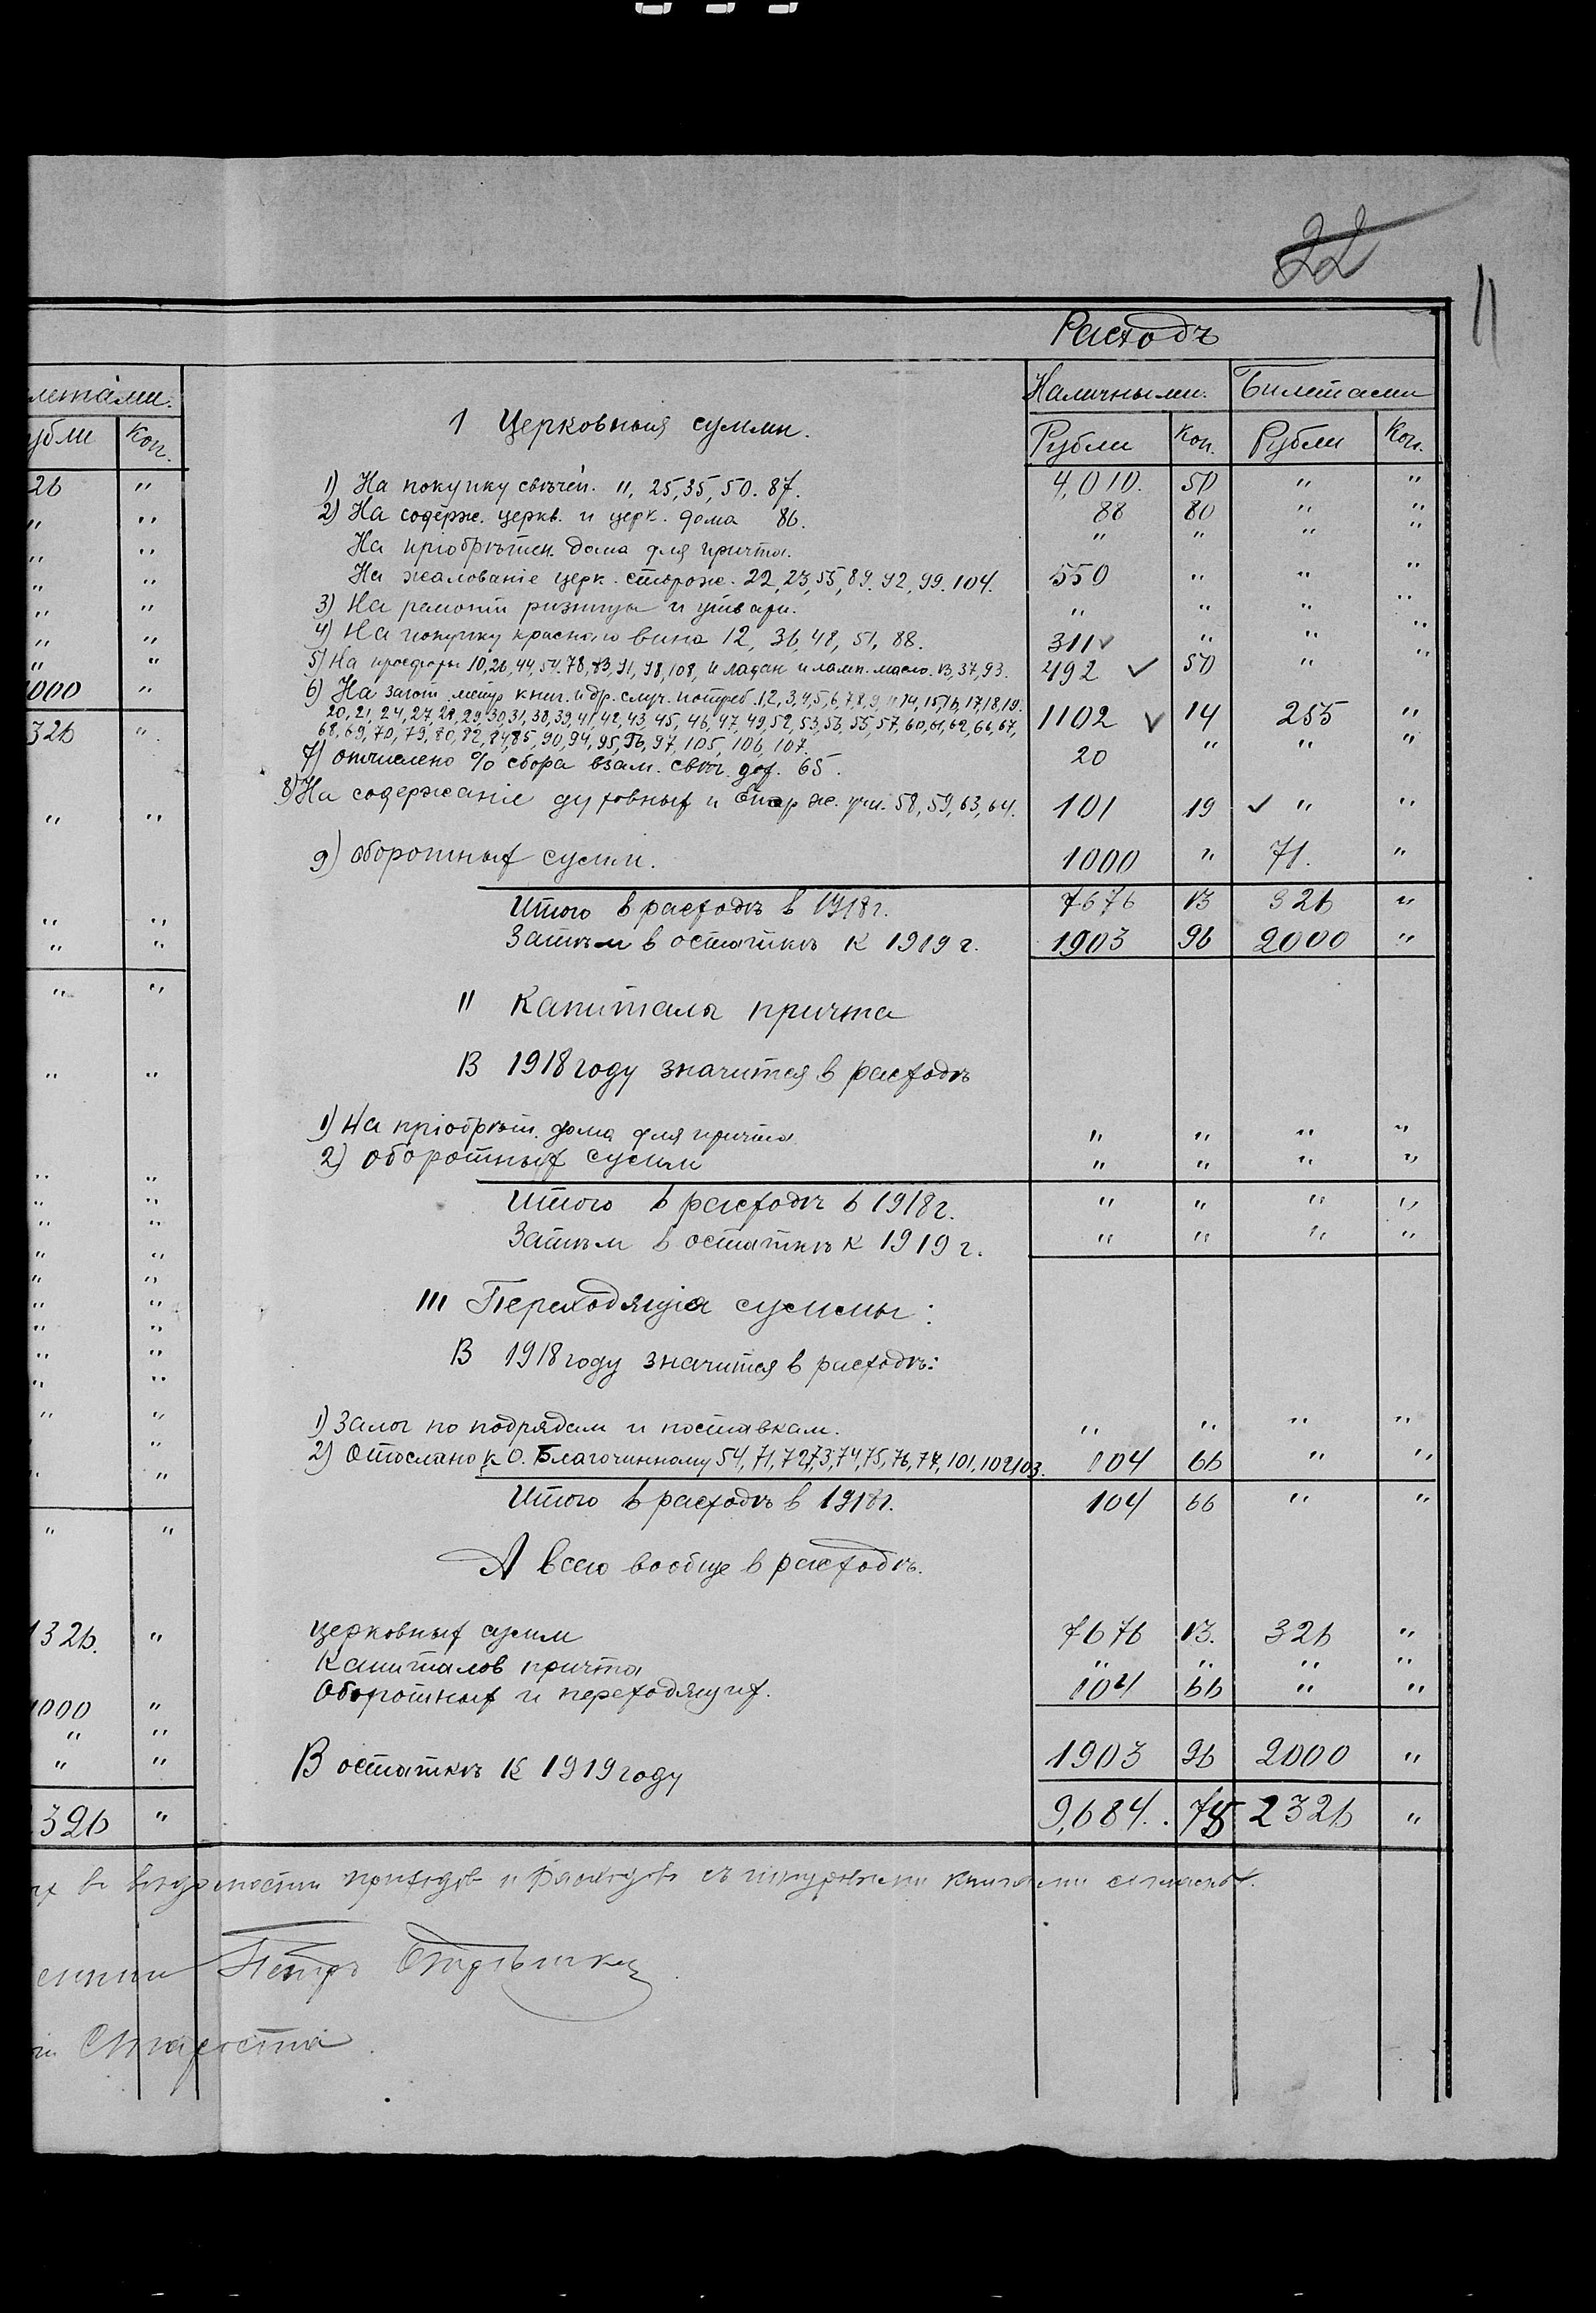 22
11
Расходъ
летами. Наличными. Билетами
1 Церковныя суммы.
убли Коп. Рубли Коп. Рубли Коп.
26 " 1) На покупку свѣчей. 11, 25, 35, 50. 87. 4,010. 50 " "
" " 2) На содерж. церкв. и церк. дома 86. 88 80 " "
" " На пріобрѣтен. дома для причта. " " " "
" " На жалованіе церк. сторож. 22, 23, 55, 89. 92, 99. 104. 550 " " "
" " 3) На ремонт ризницы и утвари. " " " "
" " 4) На покупку краснаго вина 12, 36, 48, 51, 88. 311 ✓ " " "
" " 5) На просфоры 10, 26, 44, 54. 78, 83, 91, 98, 108, и ладан и ламп. масло. 13, 37, 93. 492 ✓ 50 " "
1000 " 6) На загот. метр. книг. и др. случ. потреб. 1, 2, 3, 4, 5, 6, 7, 8, 9, 11, 14, 15, 16, 17, 18, 19.
326 " 20, 21, 24, 27, 28, 29, 30, 31, 38, 39, 41, 42, 43, 45, 46, 47, 49, 52, 53, 53, 55, 57, 60, 61, 62, 66, 67, 1102 ✓ 14 255 "
68, 69, 70, 79, 80, 82, 84, 85, 90, 94, 95, 96, 97, 105, 106, 107.
7) отчислено % сбора взам. свѣч. дох. 65. 20 " " "
" " 8) На содержаніе духовных и Епар. ж. учи. 58, 59, 63, 64. 101 19 ✓ " "
9) оборотных сумм. 1000 " 71. "
" " Итого в расходѣ в 1918 г. 7676 13 326 "
" " Затѣм в остаткѣ к 1919 г. 1903 96 2000 "
" " II Капиталы причта
" " В 1918 году значится в расходѣ
1) На пріобрѣт. дома для причта " " " "
" " 2) оборотных сумм " " " "
" " Итого в расходѣ в 1918 г. " " " "
" " Затѣм в остаткѣ к 1919 г. " " " "
" " III Переходящія суммы:
" " В 1918 году значится в расходѣ:
" " 1) Залог по подрядам и поставкам. " " " "
" " 2) Отослано к О. Благочинному 54, 71, 72, 73, 74, 75, 76, 77, 101, 102, 103. 104 66 " "
" " Итого в расходѣ в 1918 г. 104 66 " "
А всего вообще в расходѣ.
1326. " церковных сумм 7676 13. 326 "
Капиталов причта " " " "
1000 " Оборотных и переходящих. 104 66 " "
" "
" " В остаткѣ к 1919 году 1903 96 2000 "
326 " 9,684. 75 2326 "
приходов и расходов съ шнуровыми книгами
Петръ
Староста